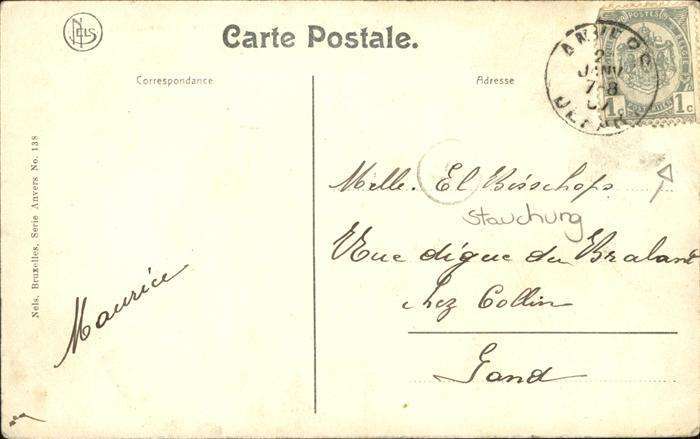 NELS
Carte Postale.
Correspondance
Adresse
POSTES
1c 1c
2
JANV
7-8
07
Nels, Bruxelles, Serie Anvers No. 138
Melle. El Bisschops
Stauchung
Rue digue du Brabant
chez Collin
Gand
Maurice